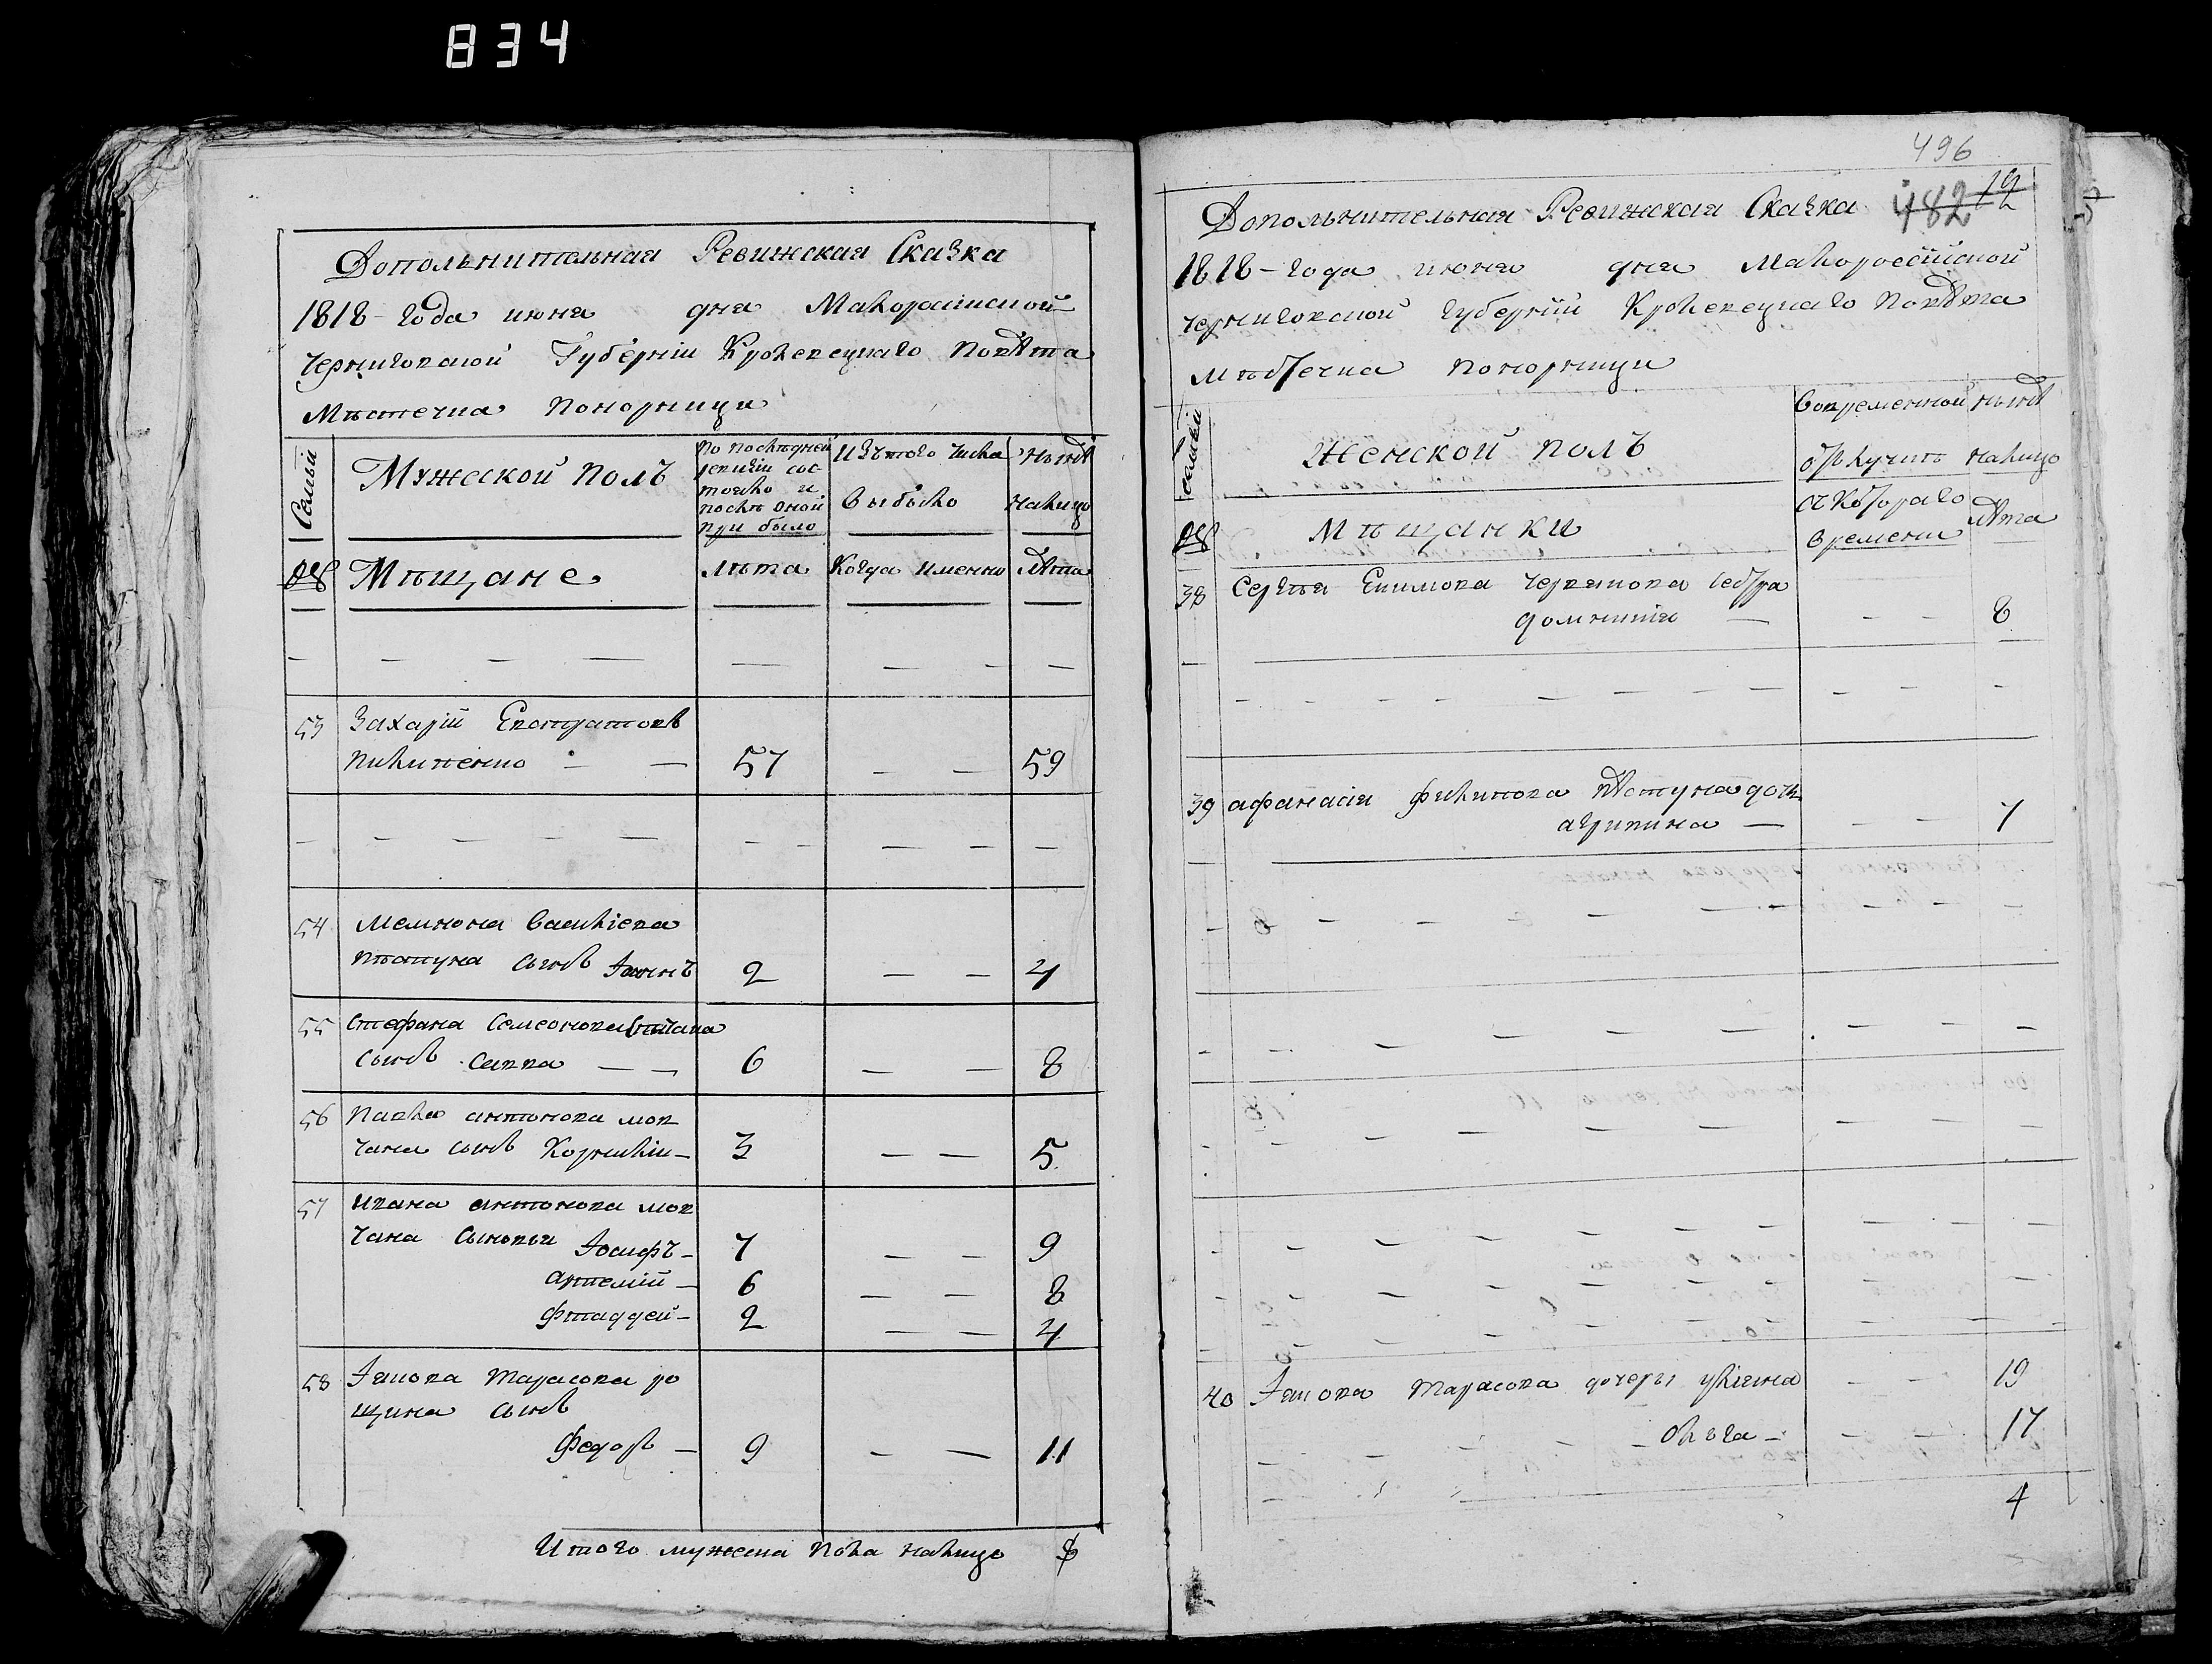 834
Дополнительная Ревижская Сказка
1818 - года июня дня Малоросiйской
Черниговской Губернiи Кролевецкаго Повѣта
Мѣстечка Понорници
Семьи
Мужеской полъ
По последней
ревизiи сос-
тояло и
послѣ оной
при было
Изътого числа
выбыло
нынѣ
налицо
№
Мѣщане
лѣта
Когда именно
лѣта
53 Захарiй Евстратовъ
Пилипенко — — 57 — — 59
54 Мемнона Василiева
сынъ Iоаннъ 2 — — 4
55 Стефана Семеонова
сынъ Савва — — 6 — — 8
56 Павла антонова мов
чана сынъ Корнилiи — 3 — — 5
57 Ивана антонова мов
чана сыновьи Iосифъ — 7 — — 9
артемiй — 6 — — 8
фтаддей — 2 — — 4
58 Iакова Тарасова ро
щина сынъ
Федоръ — 9 — — 11
Итого мужеска пола налицо 8
496
482 12
Дополнительная Ревижская Сказка
1818 - года июня дня Малоросiйской
Черниговской Губернiй Кролевецкаго Повѣта
мѣстечка Понорници
семьи
Женской полъ
вовременной
отлучкѣ
нынѣ
налицо
№
Мѣщанки
съ Котораго
времени
лѣта
38 Сергѣя Екимова сестра
домникiя — — — 8
39 афанасiя филипова дочь
агрипина — — — 7
40 Iакова Тарасова дочеры улияна — — 19
Ольга — — — 17
4